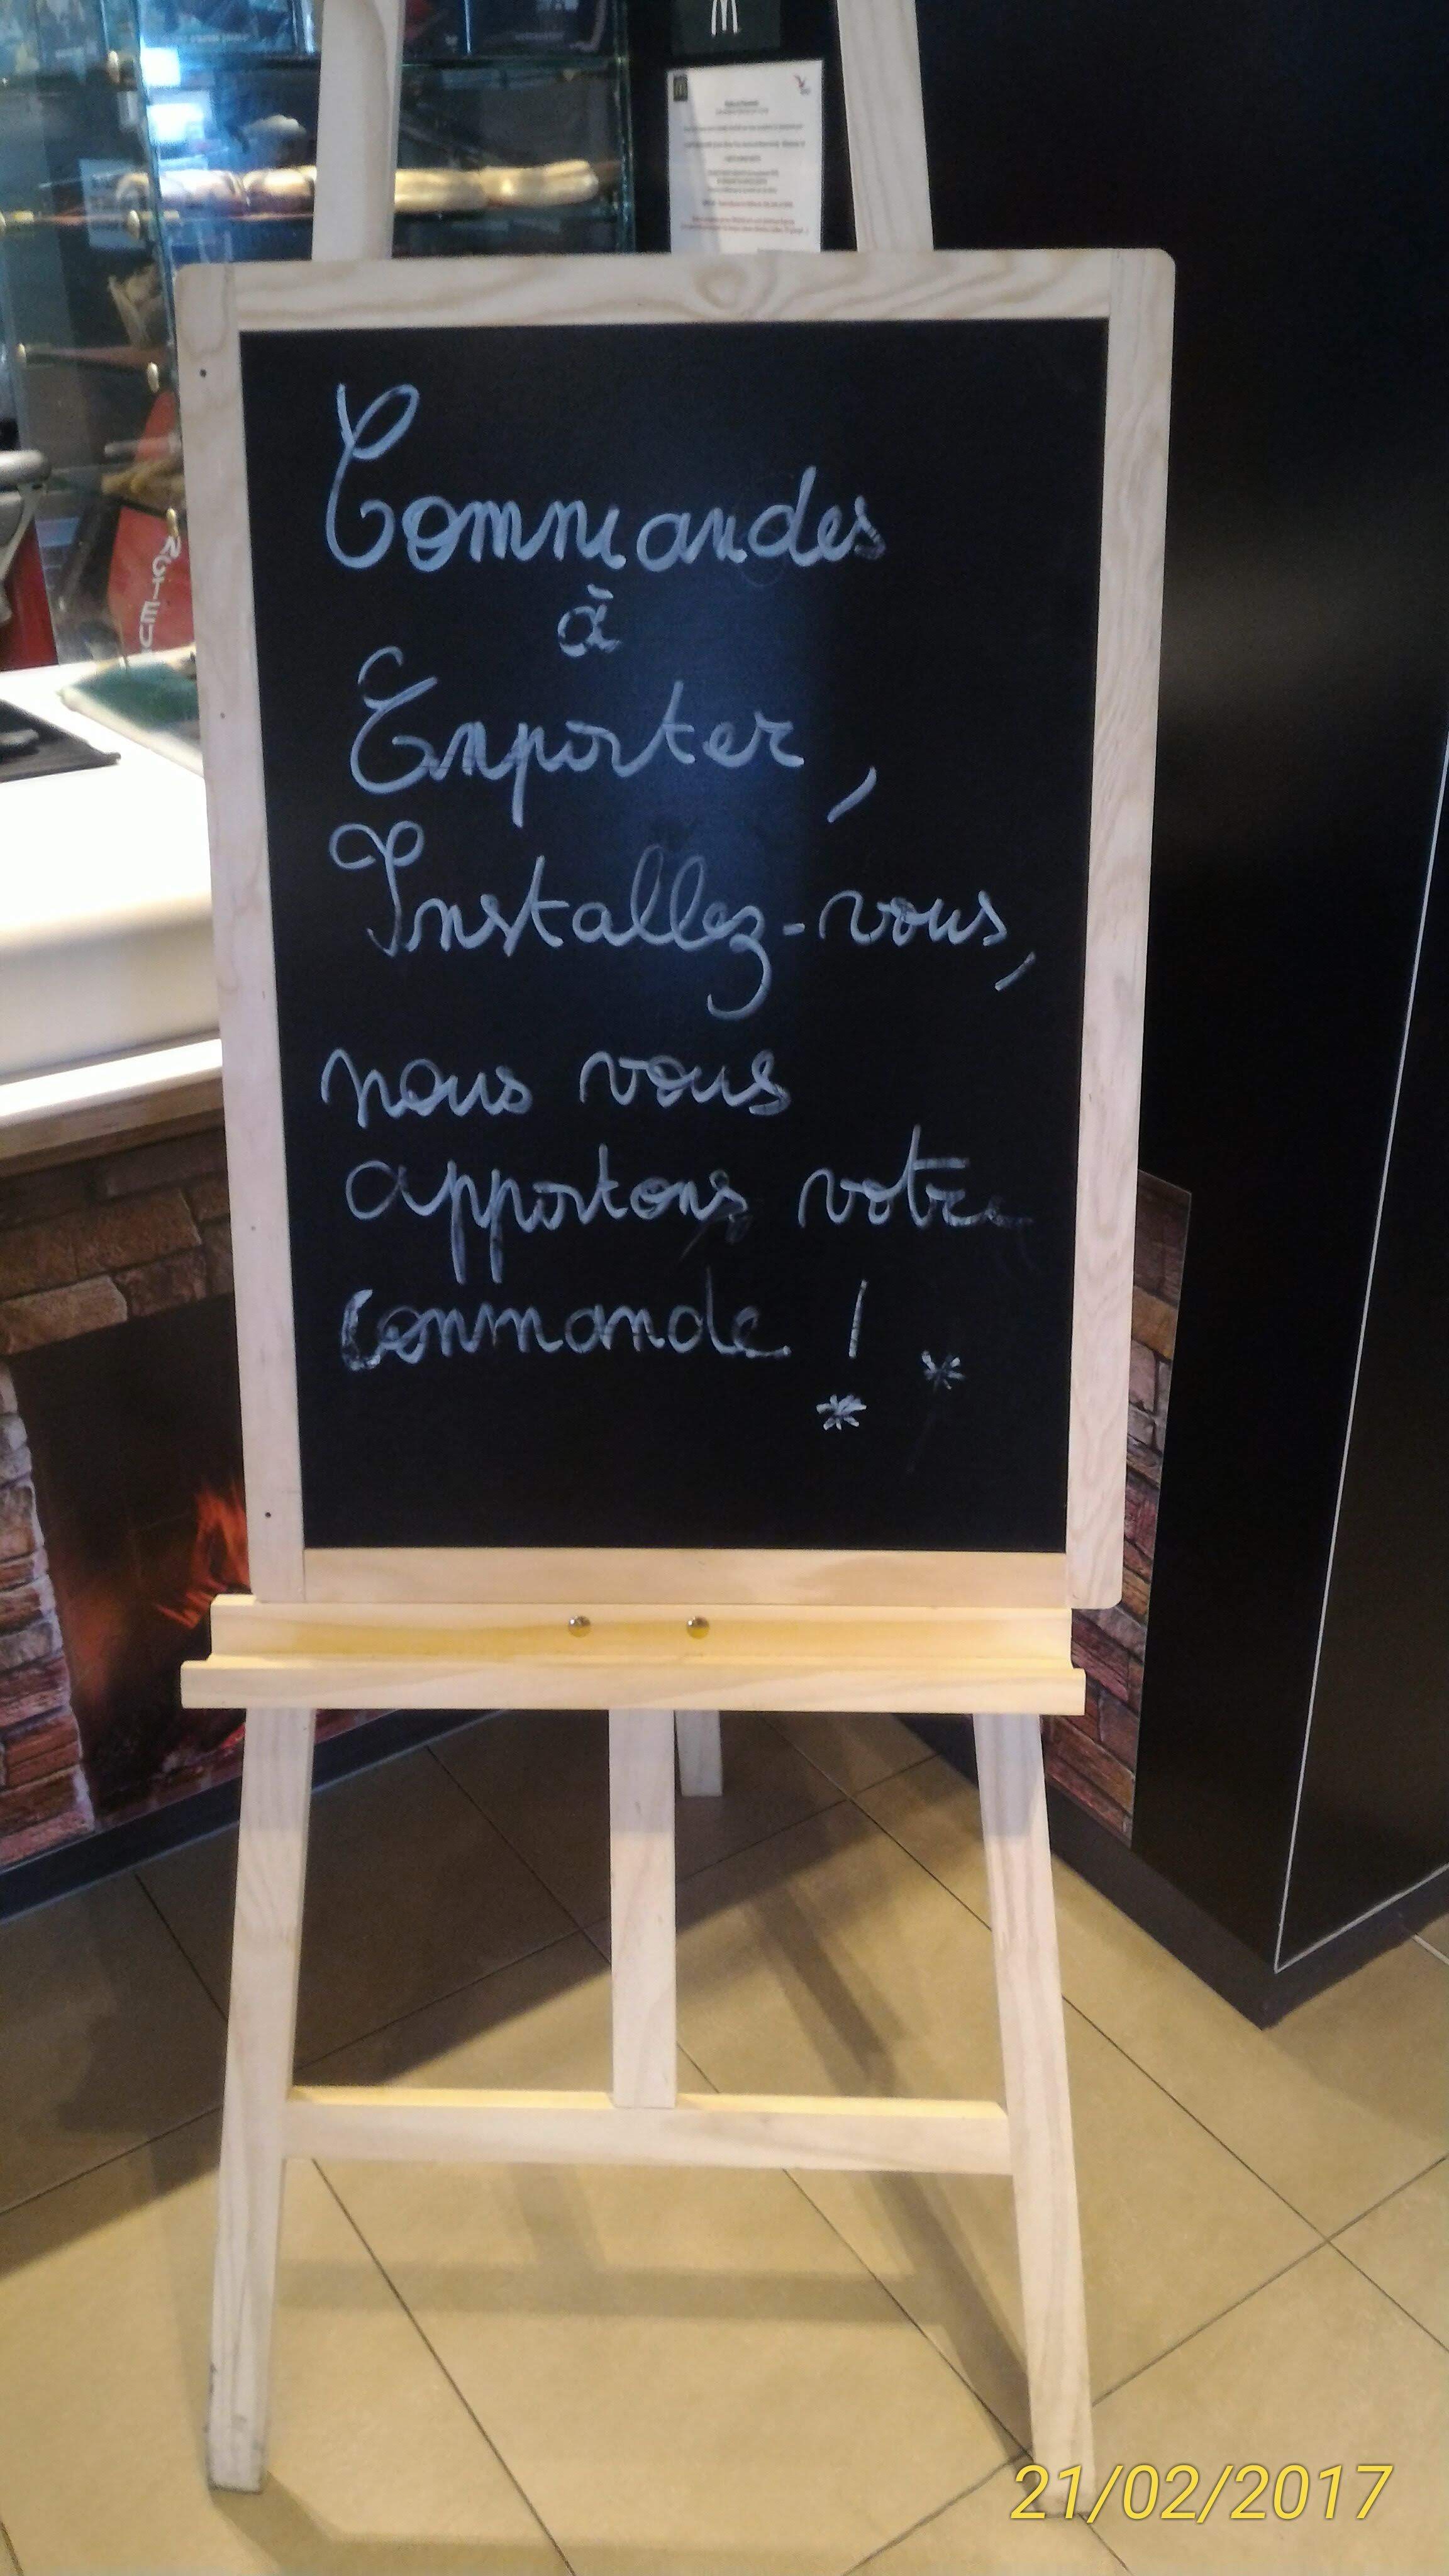 Commandes
à
Emporter,
Installez-vous,
nous vous
apportons votre
commande !
21/02/2017